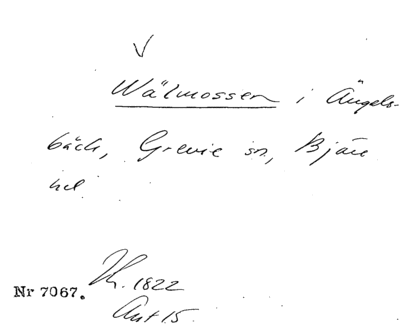 Wälmossen i Ängels-
bäck, Grevie sn, Bjäre
hd.
Nr 7067.
1822
Akt 15